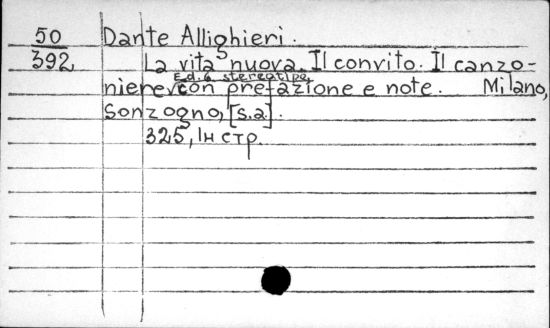 50 Dante Allighieri.
392 La vita nuova. Il convito. Il canzo-
Ed. 6 stereotipa
niere con prefazione e note. Milano,
Sonzogno, [s.a].
325, 1н стр.